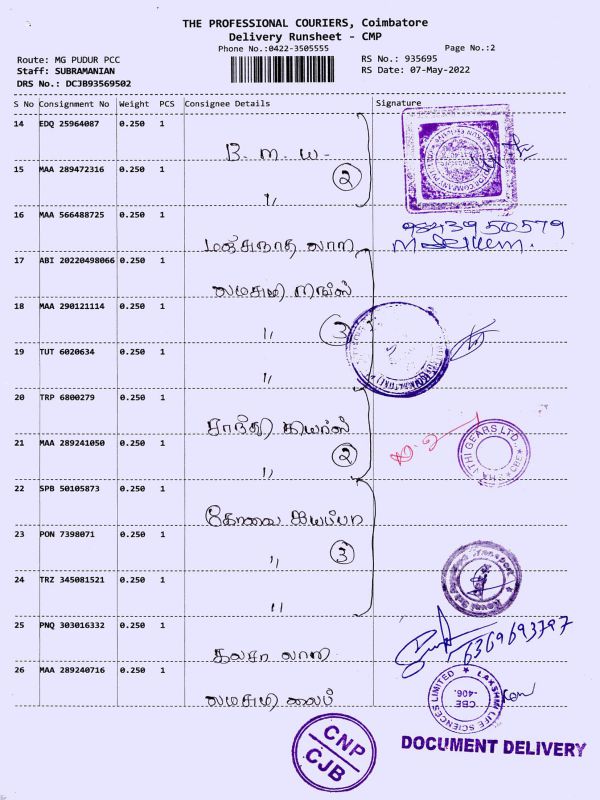 THE PROFESSIONAL COURIERS, Coimbatore
Delivery Runsheet - CMP
Phone No.:0422-3505555
Page No.:2
Route: MG PUDUR PCC
RS No.: 935695
Staff: SUBRAMANIAN
RS Date: 07-May-2022
DRS No.: DCJB93569502
S No Consignment No Weight PCS Consignee Details Signature
14 EDQ 25964087 0.250 1
B. M. W.
15 MAA 289472316 0.250 1
2
〃
16 MAA 566488725 0.250 1
மஞ்சுநாத லாரி
9843950579
17 ABI 20220498066 0.250 1
லட்சுமி ரிங்ஸ்
18 MAA 290121114 0.250 1
〃 3
19 TUT 6020634 0.250 1
〃
20 TRP 6800279 0.250 1
சாந்தி கியர்ஸ்
21 MAA 289241050 0.250 1
〃 2
THI GEARS LTD.,
CBE
22 SPB 50105873 0.250 1
கோவை ஐயப்பா
23 PON 7398071 0.250 1
〃 3
24 TRZ 345081521 0.250 1
〃
25 PNQ 303016332 0.250 1
6369693797
லாரி
26 MAA 289240716 0.250 1
லட்சுமி லைப்
LAKSHMI LIFE SCIENCES LIMITED
CBE
-406.
CNP
CJB
DOCUMENT DELIVERY